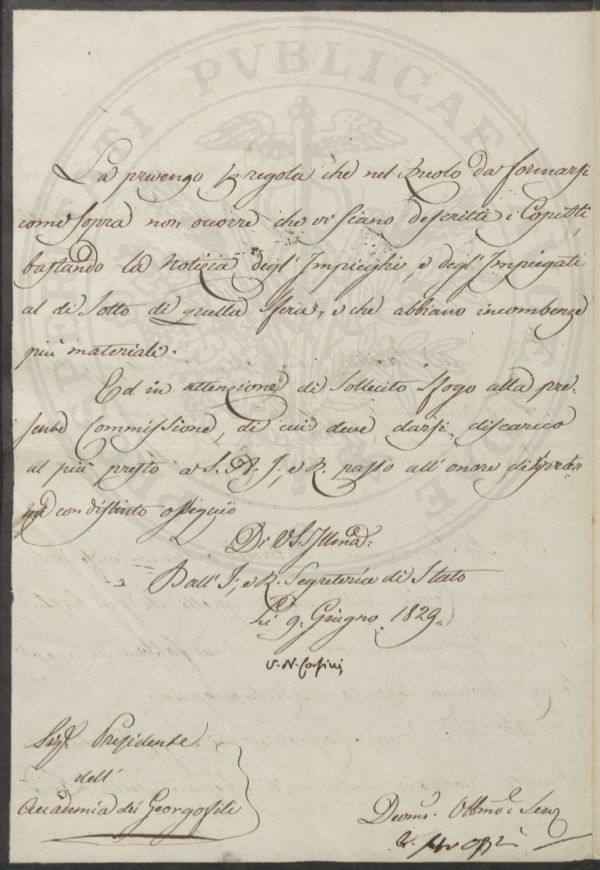 La prevengo P. regola che nel Ruolo da formarsi
come sopra non ocorre che vi siano descritti i Copisti,
bastando la Notizia degl' Impieghi, e degl' Impiegati
al di sotto di quella sfera, e che abbiano incombenze
più materiali.
Ed in attenzione di sollecito sfogo alla pre-
sente Commissione, di cui deve darsi discarico
al più presto a S. A. I., e R. passo all' onore di
con distinto ossequio
Di VS Illma:
Dall' I., e R. Segreteria di Stato
Li 9. Giugno 1829.
V. N. Corsini
Sigr. Presidente
dell'
Accademia dei Georgofili
Devmo. Obbmo. Serv